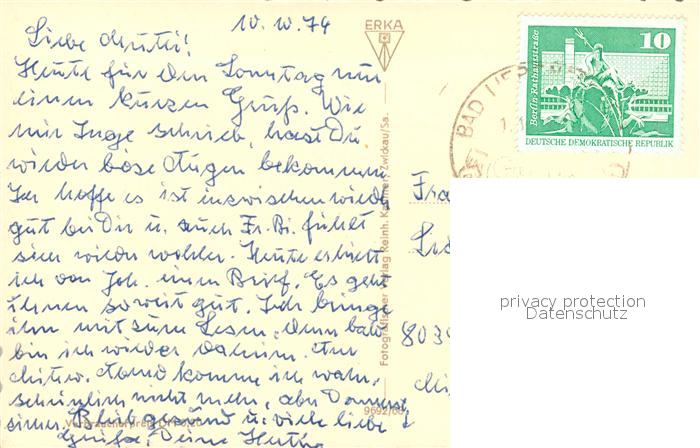 10. 10. 74
Liebe Mutti!
Heute für den Sonntag nur
einen kurzen Gruß. Wie
mir Inge schrieb, hast Du
wieder böse Augen bekommen.
Ich hoffe es ist inzwischen wieder
gut bei Dir u. auch Fr. Bi. fühlt
sich wieder wohler. Heute erhielt
ich von Joh. einen Brief. Es geht
ihnen soweit gut. Ich bringe
ihn mit zum Lesen, denn bald
bin ich wieder daheim. Am
Mittw. Abend komme ich wahr-
scheinlich nicht mehr, aber Donners
Bleib gesund u. viele liebe
Grüße, Deine Hertha
ERKA
Fotografischer Verlag Reinh. Kallmer, Zwickau/Sa.
9692/66
Verbraucherpreis DM 0,20
BAD LIE
10
Berlin-Rathausstraße
DEUTSCHE DEMOKRATISCHE REPUBLIK
Fra
803
privacy protection
Datenschutz